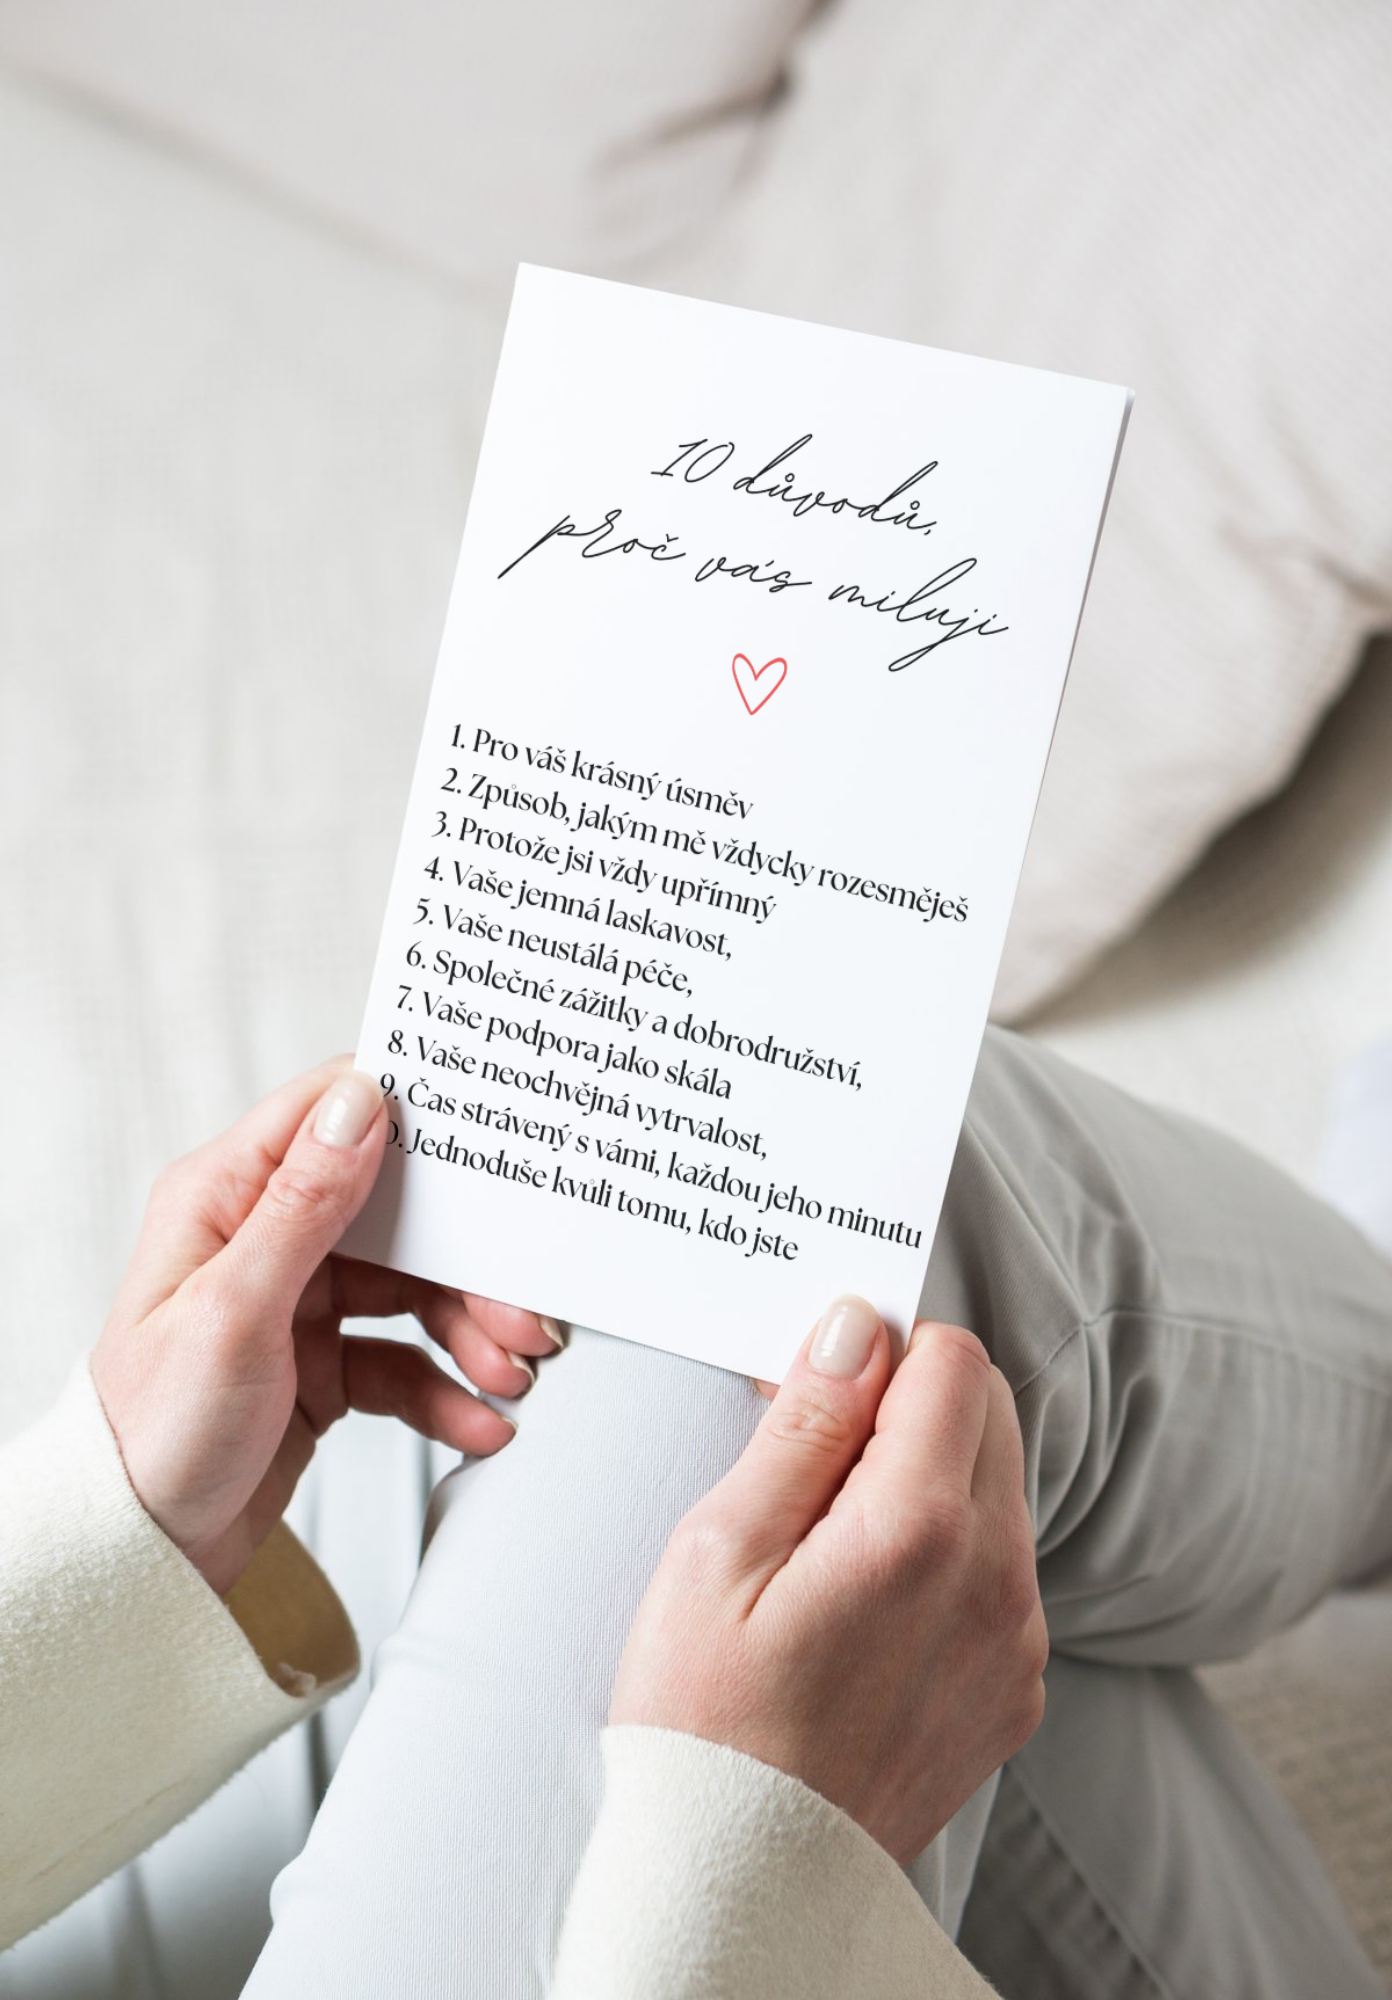 10 důvodů,
proč vás miluji
1. Pro váš krásný úsměv
2. Způsob, jakým mě vždycky rozesměješ
3. Protože jsi vždy upřímný
4. Vaše jemná laskavost,
5. Vaše neustálá péče,
6. Společné zážitky a dobrodružství,
7. Vaše podpora jako skála
8. Vaše neochvějná vytrvalost,
9. Čas strávený s vámi, každou jeho minutu
0. Jednoduše kvůli tomu, kdo jste